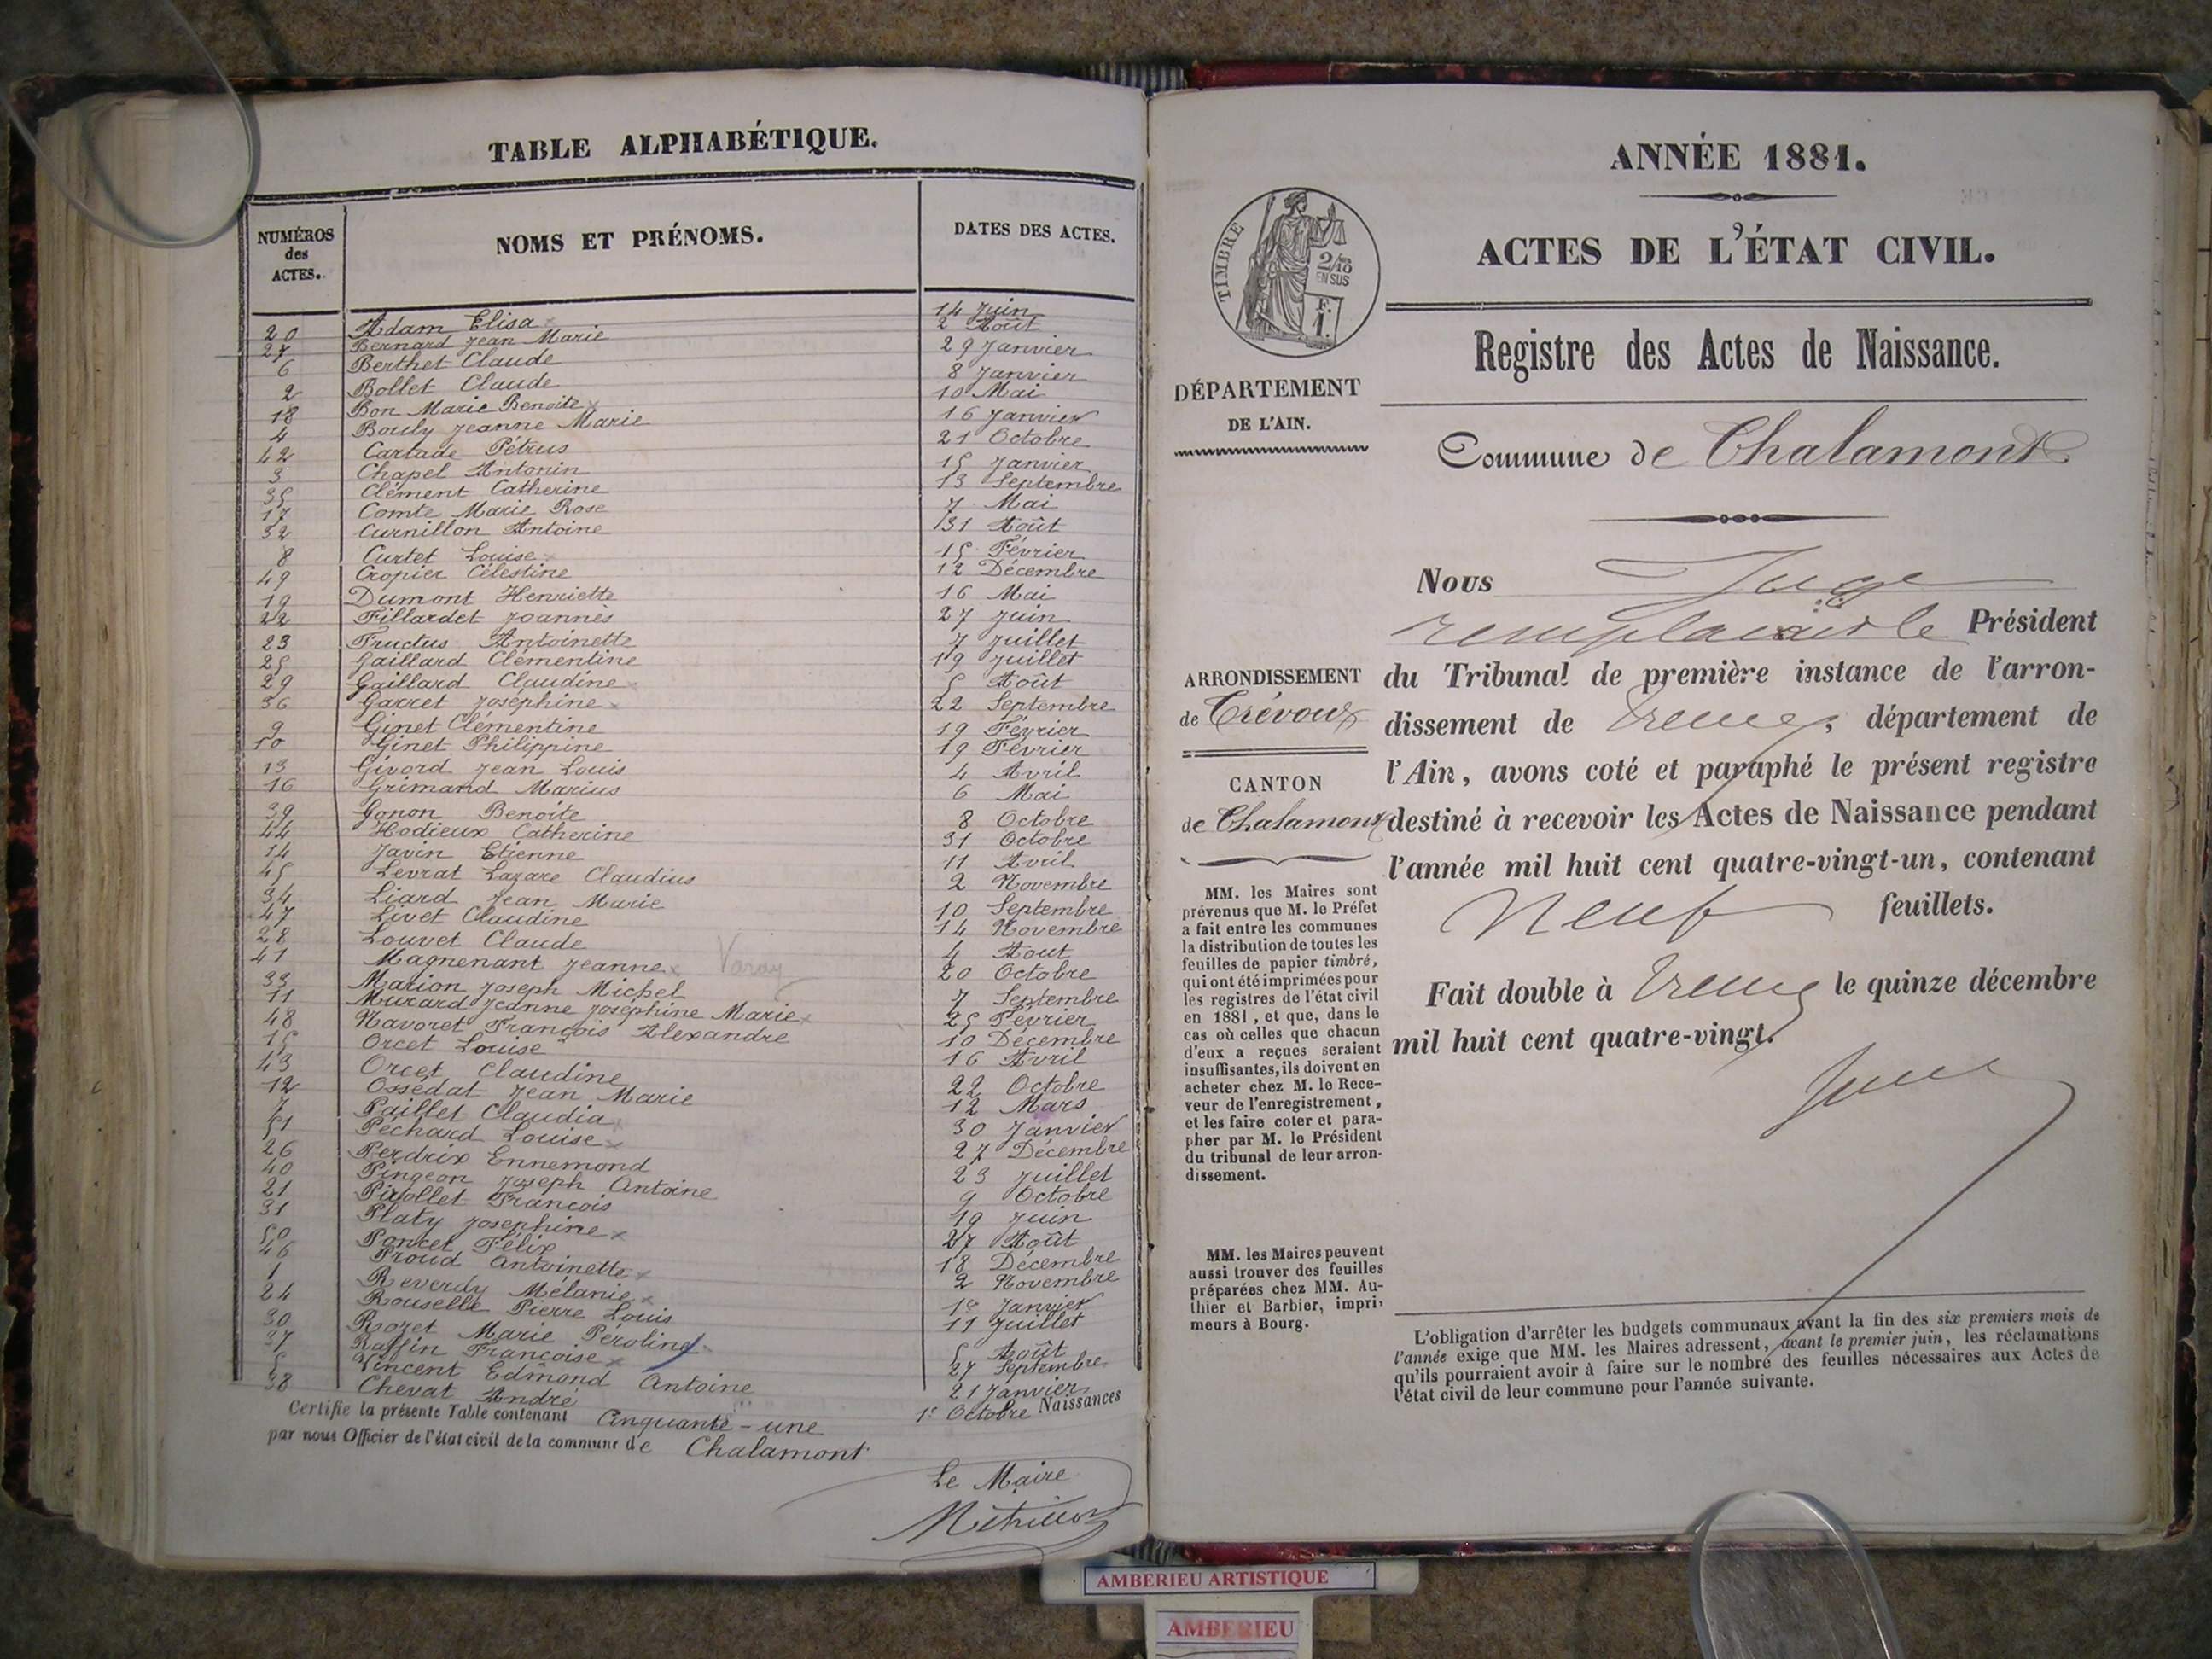 TABLE ALPHABÉTIQUE.
NUMÉROS des ACTES. NOMS ET PRÉNOMS. DATES DES ACTES.
20 Adam Elisa 14 Juin
27 Bernard Jean Marie 2 Août
6 Berthet Claude 29 Janvier
2 Bollet Claude 8 Janvier
18 Bon Marie Benoite 10 Mai
4 Bouly Jeanne Marie 16 Janvier
42 Cartade Pétrus 21 Octobre
3 Chapel Antonin 15 Janvier
35 Clément Catherine 13 Septembre
17 Comte Marie Rose 7 Mai
32 Curnillon Antoine 31 Août
8 Curtet Louise 15 Février
49 Cropier Célestine 12 Décembre
19 Dumont Henriette 16 Mai
22 Fillardet Joannès 27 Juin
23 Fructus Antoinette 7 Juillet
25 Gaillard Clémentine 19 Juillet
29 Gaillard Claudine 5 Août
36 Garret Josephine 22 Septembre
9 Ginet Clémentine 19 Février
10 Ginet Philippine 19 Février
13 Givord Jean Louis 4 Avril
16 Grimand Marius 6 Mai
39 Gonon Benoite 8 Octobre
44 Hodieux Catherine 31 Octobre
14 Javin Etienne 11 Avril
45 Levrat Lazare Claudius 2 Novembre
34 Liard Jean Marie 10 Septembre
47 Livet Claudine 14 Novembre
28 Louvet Claude 4 Aout
41 Magnenant Jeanne 20 Octobre
33 Marion Joseph Michel 7 Septembre
11 Murard Jeanne Joséphine Marie 25 Février
48 Navoret François Alexandre 10 Décembre
15 Orcet Louise 16 Avril
43 Orcet Claudine 22 Octobre
12 Ossédat Jean Marie 12 Mars
7 Paillet Claudia 30 Janvier
51 Péchard Louise 27 Décembre
26 Perdrix Ennemond 23 Juillet
40 Pingeon Joseph Antoine 9 Octobre
21 Pivollet François 19 Juin
31 Platy Josephine 27 Août
50 Poncet Félix 18 Décembre
46 Proud Antoinette 2 Novembre
1 Reverdy Mélanie 1er Janvier
24 Rouselle Pierre Louis 11 Juillet
30 Rozet Marie Péroline 5 Août
37 Raffin Françoise 27 Septembre
5 Vincent Edmond Antoine 21 Janvier
38 Chevat André 1er Octobre
Certifie la présente Table contenant Cinquante-une Naissances
par nous Officier de l'état civil de la commune de Chalamont
Le Maire
ANNÉE 1881.
ACTES DE L'ÉTAT CIVIL.
TIMBRE
2/10
EN SUS
F.
1.
Registre des Actes de Naissance.
DÉPARTEMENT
DE L'AIN.
Commune de Chalamont
Nous Juge
remplaçant le Président
du Tribunal de première instance de l'arron-
dissement de Trévoux, département de
l'Ain, avons coté et paraphé le présent registre
destiné à recevoir les Actes de Naissance pendant
l'année mil huit cent quatre-vingt-un, contenant
Neuf feuillets.
Fait double à Trévoux le quinze décembre
mil huit cent quatre-vingt.
ARRONDISSEMENT
de Trévoux
CANTON
de Chalamont
MM. les Maires sont
prévenus que M. le Préfet
a fait entre les communes
la distribution de toutes les
feuilles de papier timbré,
qui ont été imprimées pour
les registres de l'état civil
en 1881, et que, dans le
cas où celles que chacun
d'eux a reçues seraient
insuffisantes, ils doivent en
acheter chez M. le Rece-
veur de l'enregistrement,
et les faire coter et para-
pher par M. le Président
du tribunal de leur arron-
dissement.
MM. les Maires peuvent
aussi trouver des feuilles
préparées chez MM. Au-
thier et Barbier, impri-
meurs à Bourg.
L'obligation d'arrêter les budgets communaux avant la fin des six premiers mois de
l'année exige que MM. les Maires adressent, avant le premier juin, les réclamations
qu'ils pourraient avoir à faire sur le nombre des feuilles nécessaires aux Actes de
l'état civil de leur commune pour l'année suivante.
AMBERIEU ARTISTIQUE
AMBERIEU